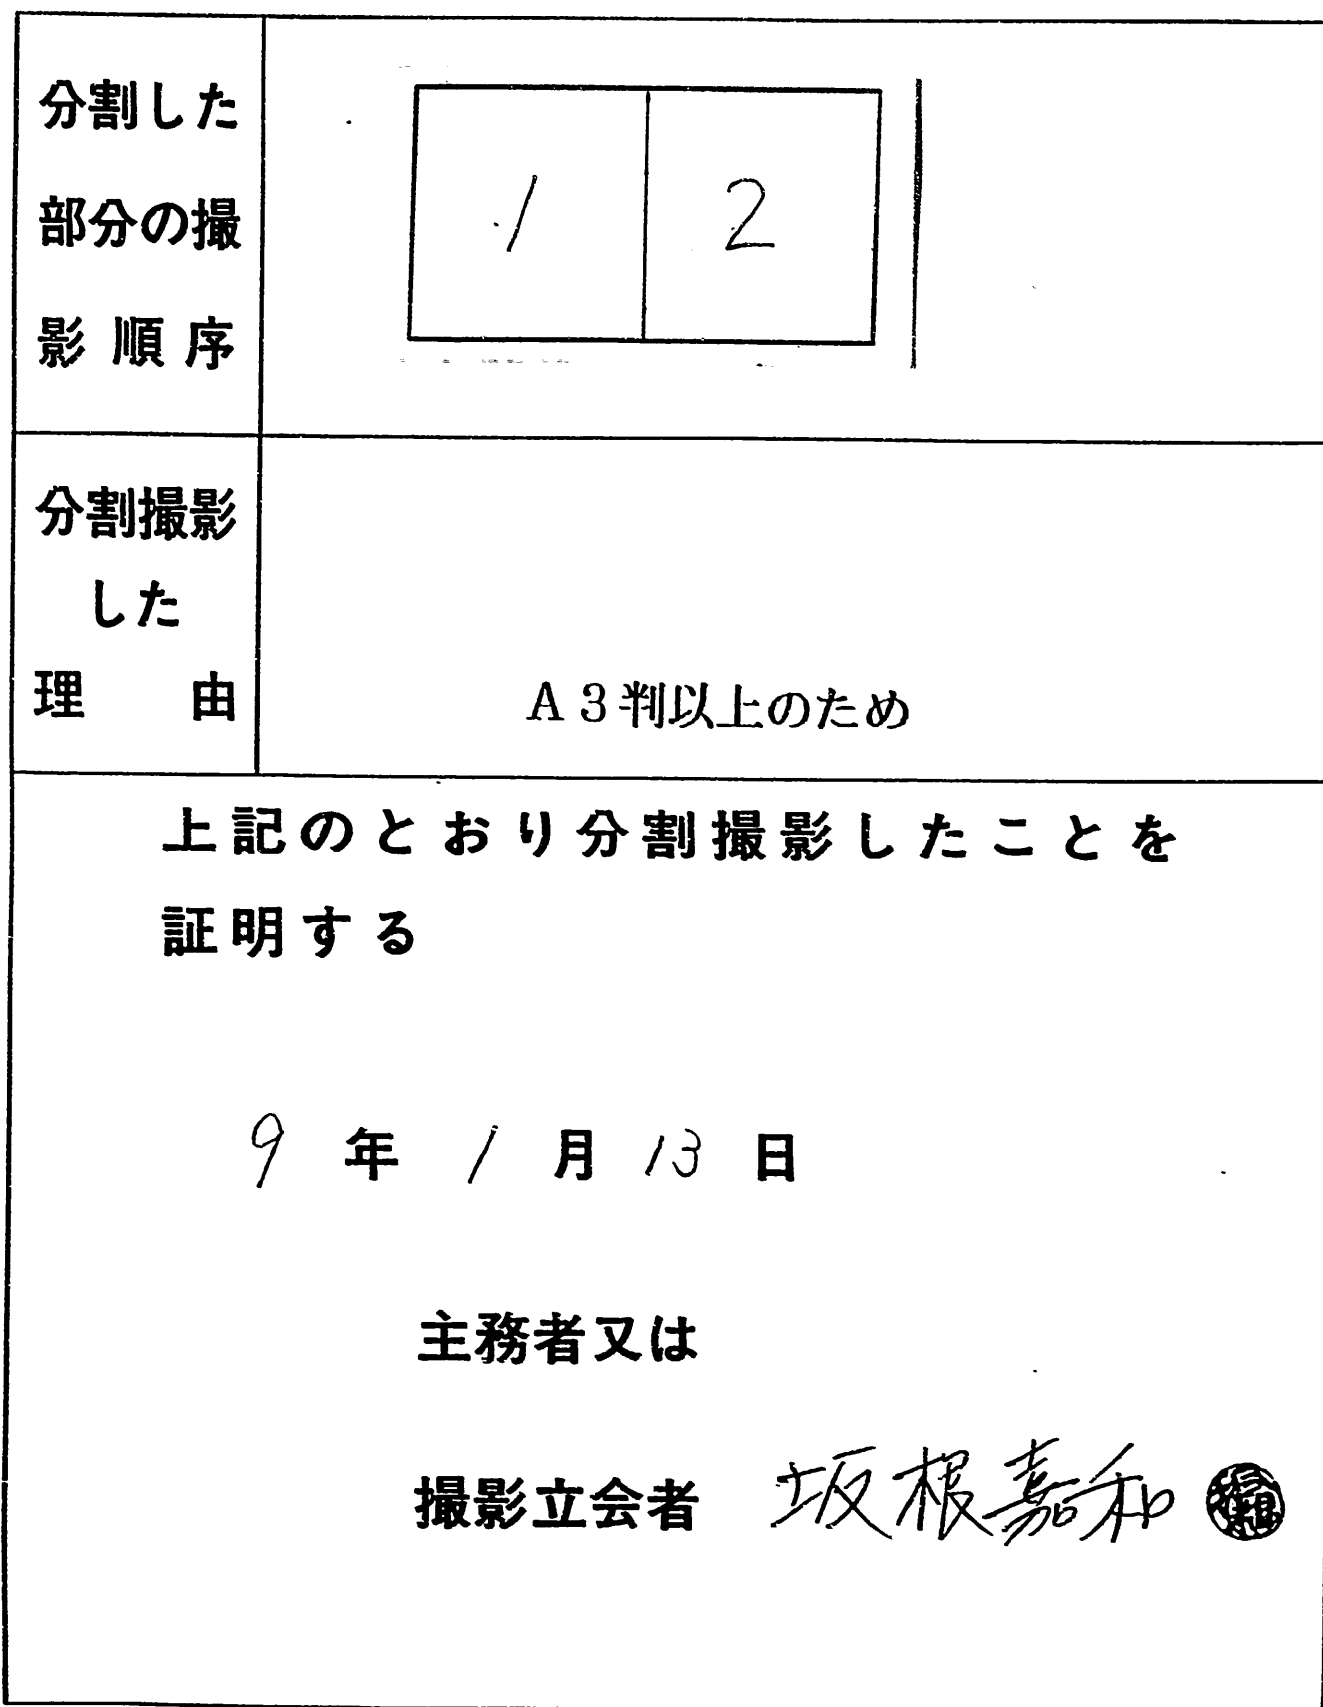 分割した
部分の撮
影順序
1 2
分割撮影
した
理 由
A3判以上のため
上記のとおり分割撮影したことを
証明する
9年1月13日
主務者又は
撮影立会者 坂根嘉和